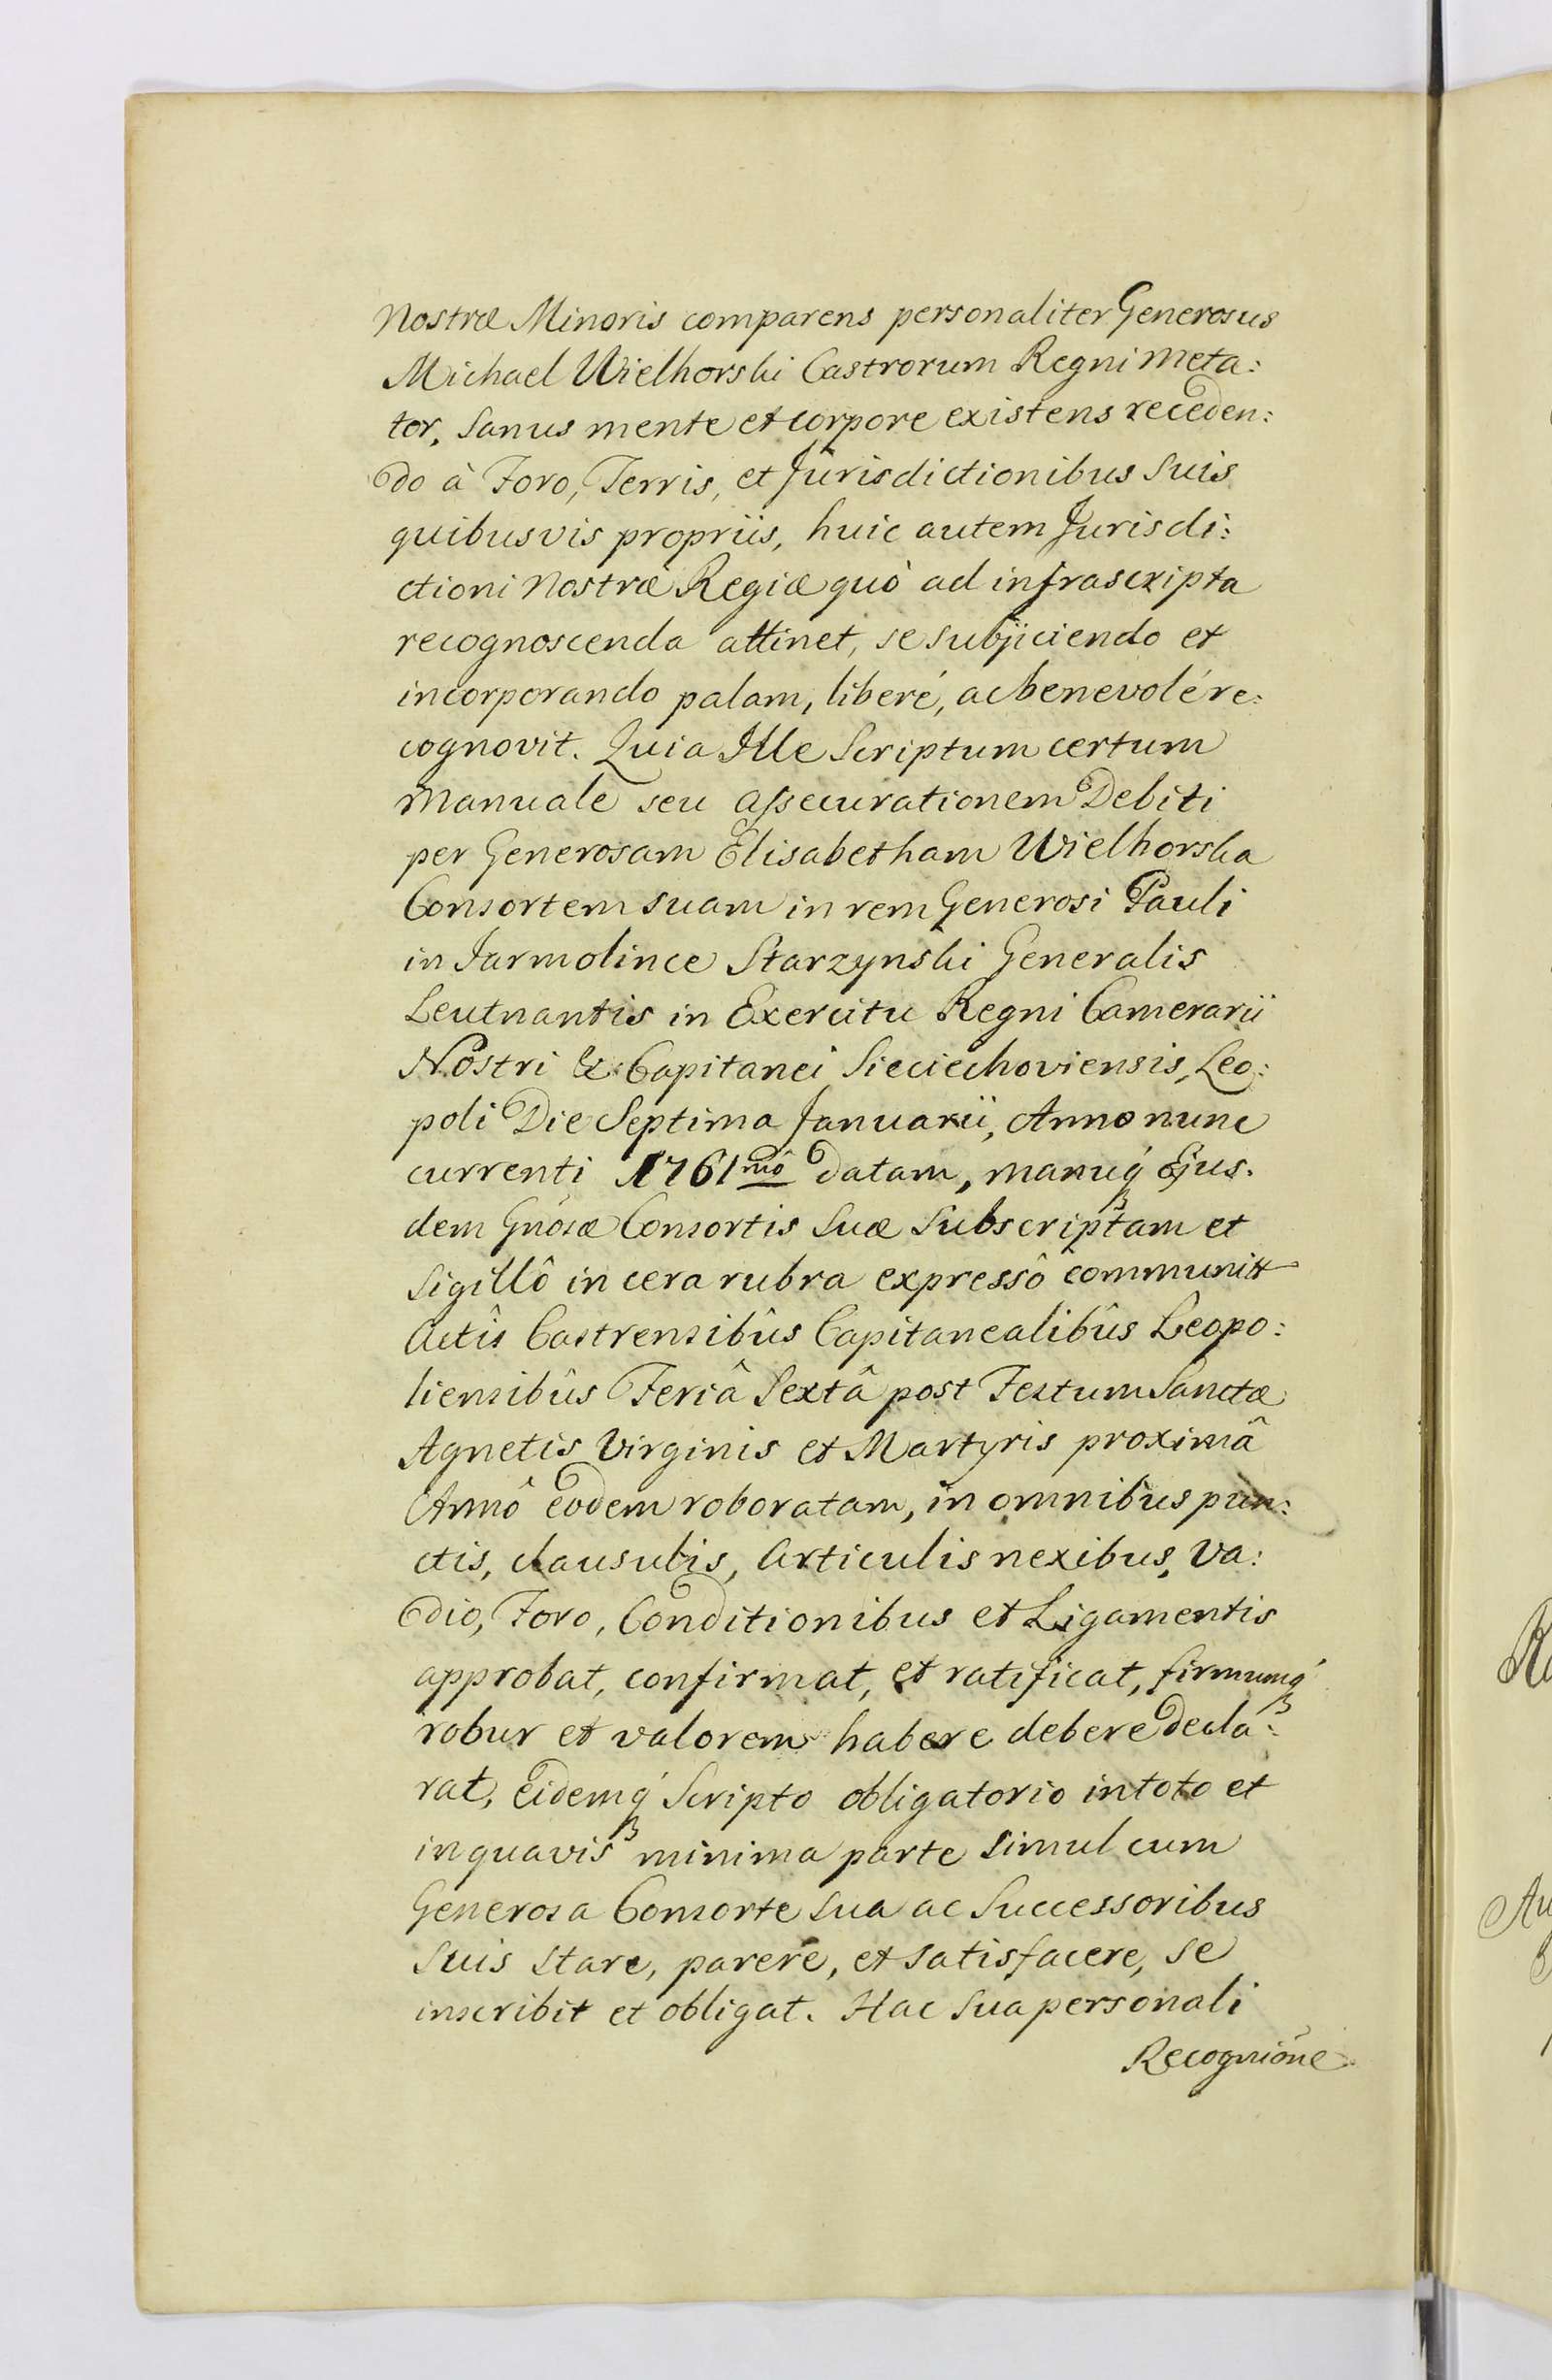 Nostræ Minoris comparens personaliter Generosus
Michael Wielhorski Castrorum Regni Meta:
tor, Sanus mente et corpore existens receden:
do à Foro, Terris, et Jurisdictionibus Suis
quibusvis propriis, huic autem Jurisdi:
ctioni Nostræ Regiæ quò ad infrascripta
recognoscenda attinet, se subjiciendo et
incorporando palam, liberé, ac benevolé re:
cognovit. Quia Ille Scriptum certum
Manuale seu Assecurationem Debiti
per Generosam Elisabetham Wielhorska
Consortem suam in rem Generosi Pauli
in Jarmolince Starzynski Generalis
Leutnantis in Exercitu Regni Camerarii
Nostri & Capitanei Sieciechoviensis, Leo:
poli Die Septima Januarii, Anno nunc
currenti 1761mô datam, manuq́ Ejus.
dem Gnósæ Consortis Suæ Subscriptam et
Sigillô in cera rubra expressô communitt
Actîs Castrensibûs Capitanealibûs Leopo:
liensibûs Feriâ Sextâ post Festum Sanctæ
Agnetis Virginis et Martyris proximâ
Annô eodem roboratam, in omnibus pun:
ctis, clausulis, Articulis nexibus, Va:
dio, Foro, Conditionibus et Ligamentis
approbat, confirmat, et ratificat, firmumq́
robur et valorem habere debere decla:
rat, Eidemq́ Scripto obligatorio in toto et
in quavis minima parte simul cum
Generosa Consorte sua ac Successoribus
Suis stare, parere, et satisfacere, se
inscribit et obligat. Hac Sua personali
Recognióne